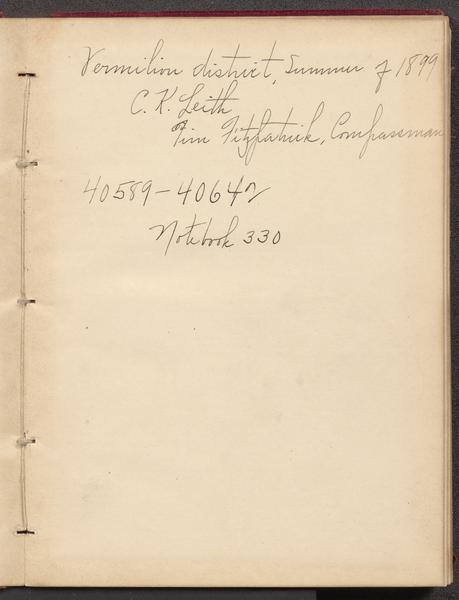 Vermilion district, Summer of 1899
C. K. Leith
Tim Fitzpatrick, Compassman
40589-40642
Notebook 330